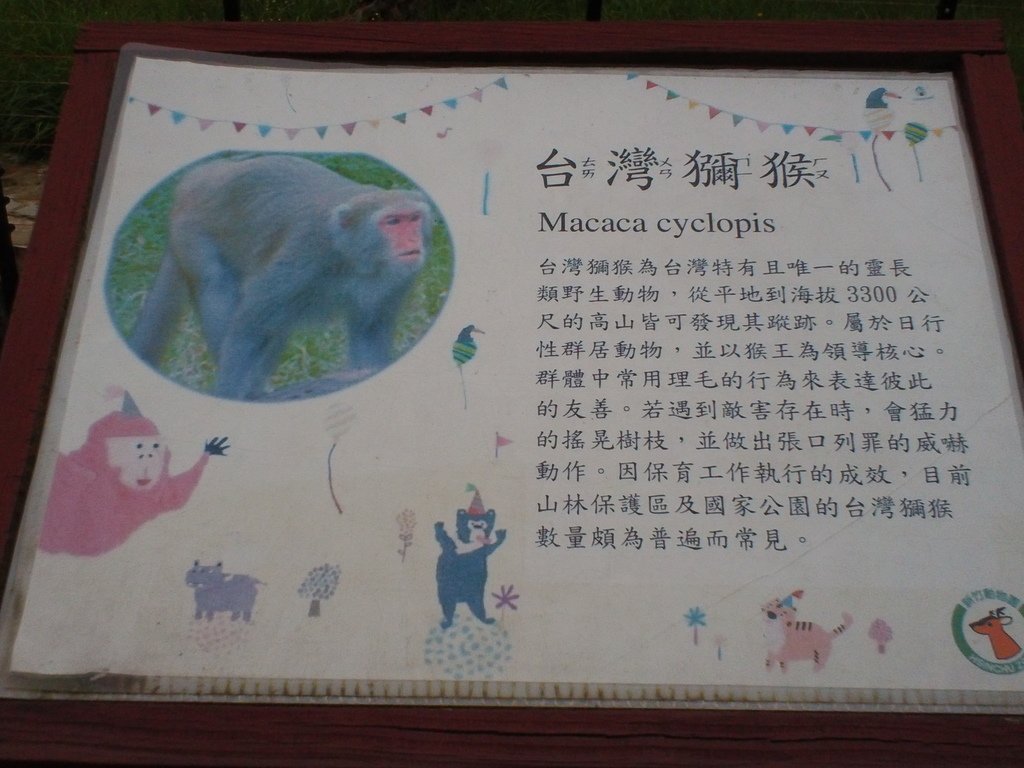 台灣獼猴
ㄊㄞ ㄨㄢ ㄇㄧ ㄏㄡ
Macaca cyclopis
台灣獼猴為台灣特有且唯一的靈長
類野生動物，從平地到海拔 3300 公
尺的高山皆可發現其蹤跡。屬於日行
性群居動物，並以猴王為領導核心。
群體中常用理毛的行為來表達彼此
的友善。若遇到敵害存在時，會猛力
的搖晃樹枝，並做出張口列罪的威嚇
動作。因保育工作執行的成效，目前
山林保護區及國家公園的台灣獼猴
數量頗為普遍而常見。
新竹動物園